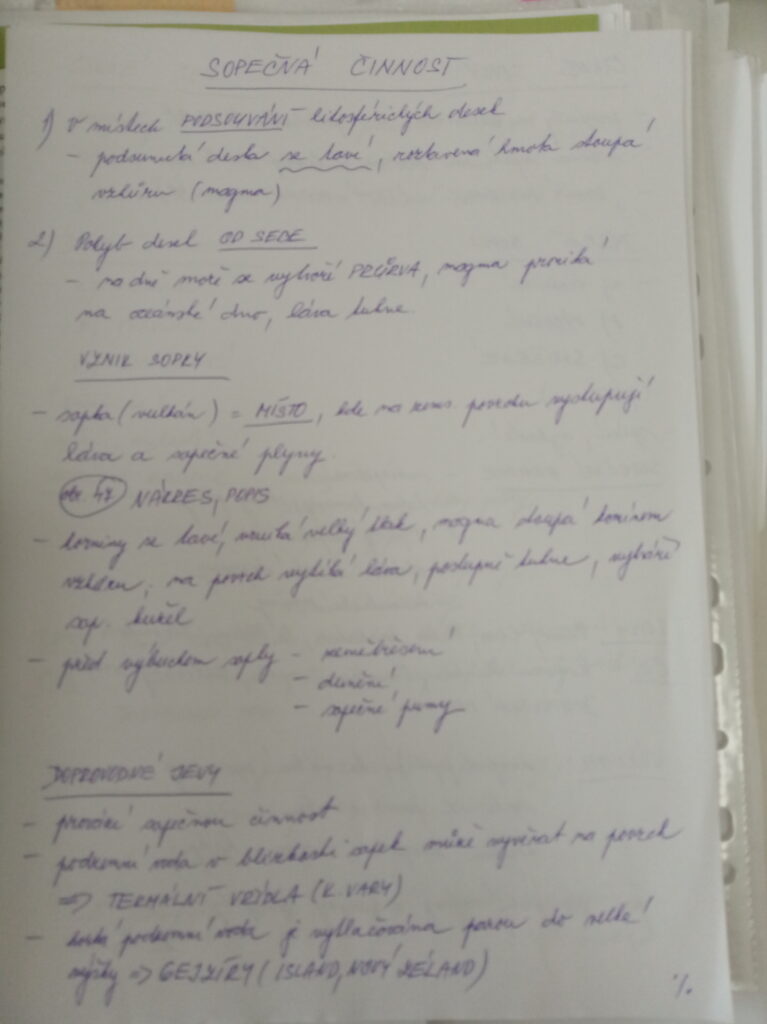 SOPEČNÁ ČINNOST
1) V místech PODSOUVÁNÍ litosférických desek
- podsunutá deska se taví, roztavená hmota stoupá
vzhůru (magma)
2) Pohyb desek OD SEBE
- na dně moře se vytvoří PRŮRVA, magma proniká
na oceánské dno, láva tuhne.
VZNIK SOPKY
- sopka (vulkán) = MÍSTO, kde na zems. povrchu vystupují
láva a sopečné plyny.
obr. 48 NÁKRES, POPIS
- horniny se taví, vzniká velký tlak, magma stoupá komínem
vzhůru, na povrch vytéká láva, postupně tuhne, vytváří
sop. kužel
- před výbuchem sopky - zemětřesení
- dunění
- sopečné pumy
DOPROVODNÉ JEVY
- provází sopečnou činnost
- podzemní voda v blízkosti sopek může vyvěrat na povrch
=> TERMÁLNÍ VŘÍDLA (K. VARY)
- horká podzemní voda je vytlačována parou do velké
výšky => GEJZÍRY (ISLAND, NOVÝ ZÉLAND)
%.